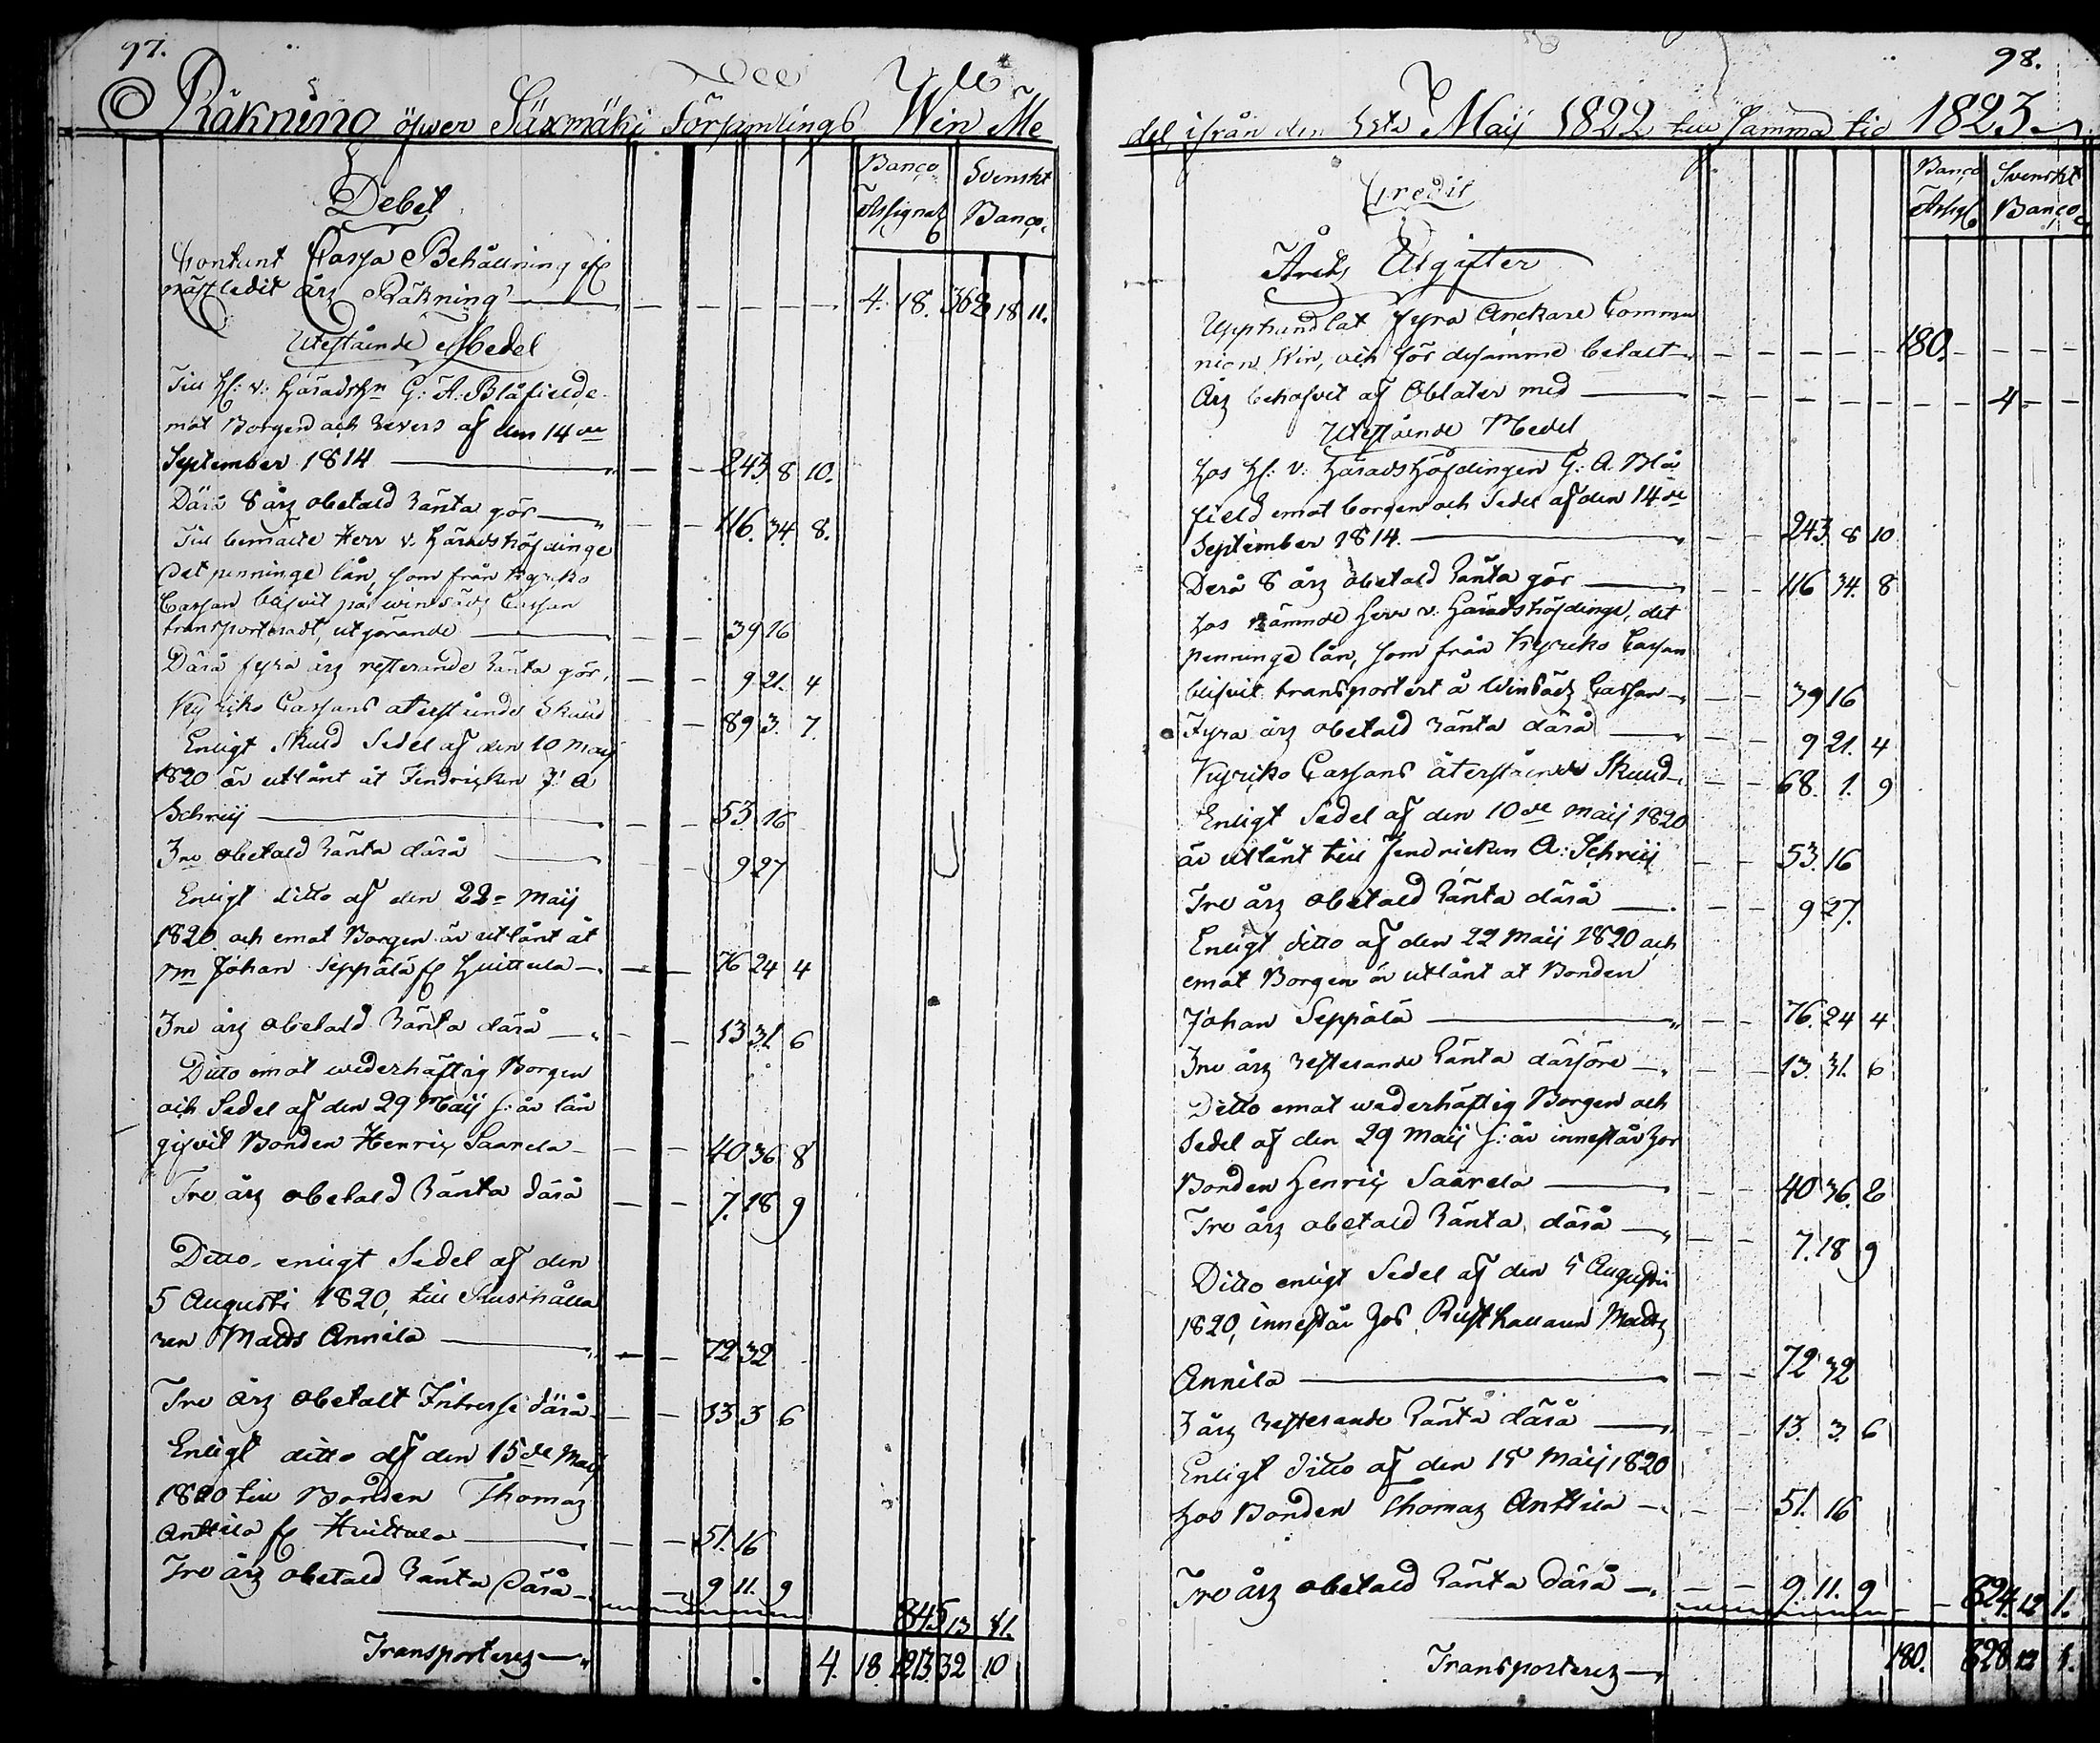 97.
Räkning öfwer Säxmäki Församlings Win Me
Debet
Banco Assignat
Svenskt Banco.
Contant Cassa Behållning if
näst ledit års Räkning 4. 18. 368 18 11.
Uteståënde Medel
Till H: v: Häradshn G: A: Blåfield
mot Borgen och Revers af den 14de
September 1814 243 8 10.
Därå 8 års obetald Ränta gör 116. 34. 8.
Till bemälte Herr v. Häradshöfdinge
det penninge lån, som från Kyrko
Cassan blifvit på winsädz Cassan
transporteradt, utgörande 39 16
Därå fyra års resterande Ränta gör, 9 21. 4
Kyrko Cassans återstående Skuld 89 3. 7.
Enligt Skuld Sedel af den 10 Maij
1820 är utlånt åt Fendricken J: A
Schreij 53 16
3ne obetald Ränta därå 9 27
Enligt ditto af den 22e Maij
1820 och emot Borgen är utlånt åt
Johan Seppälä fr Huittula 76 24 4
3ne års obetald Ränta därå 13 31 6
Ditto emot wederhäftig Borgen
och Sedel af den 29 Maij s: år lån
gifvit Bonden Henric Saarela 40 36 8
Tre års obetald Ränta därå 7. 18 9
Ditto, enligt Sedel af den
5 Augusti 1820, till Rusthålla
ren Matts Annila 72 32
Tre års obetalt Intresse därå 13 3 6
Enligt ditto af den 15de Maij
1820 till Bonden Thomas
Anttila fr Huittula 51. 16
Tre års obetald Ränta därå 9 11. 9 845 13 11.
Transporteres 4. 18 1213 32 10
98.
del ifrån den 1sta Maij 1822 till samma tid 1823
Credit
Banco Assig
Svenskt Banco
Årets Utgifter
Upphandlat fyra Anckare Commu
nion Win, och för desamme betalt 180.
Års behofvet af Oblater med 4
Utestående Medel
Hos H: v: Häradshöfdingen G: A. Blå
field emot borgen och Sedel af den 14de
September 1814. 243 8 10
Derå 8 års obetald Ränta gör 116 34. 8
Hos nämnde Herr v. Häradshöfdinge, det
penninge lån, som från Kyrko Cassan
blifvit transportert å Winsädz Cassan 39 16
Fyra års obetald Ränta därå 9 21. 4
Kyrko Cassans återstående Skuld 68. 1. 9
Enligt Sedel af den 10de Maij 1820
är utlånt till Fendricken A: Schreij 53. 16
Tre års obetald Ränta därå 9 27.
Enligt ditto af den 22 Maij 1820 och
emot Borgen är utlånt åt Bonden
Johan Seppälä 76. 24 4
3ne års resterande Ränta därföre 13. 31. 6
Ditto emot wederhäftig Borgen och
Sedel af den 29 Maij s: år innestår hos
Bonden Henric Saarela 40 36. 8
Tre års obetald Ränta därå 7. 18 9
Ditto enligt Sedel af den 5 Augusti
1820, innestår hos Rusthållaren Matts
Annila 72 32
3 års resterande Ränta därå 13. 3. 6
Enligt ditto af den 15 Maij 1820
hos Bonden Thomas Anttila 51. 16
Tre års obetald Ränta därå 9. 11. 9 824. 12 1.
Transporteres 180. 828 12 1.